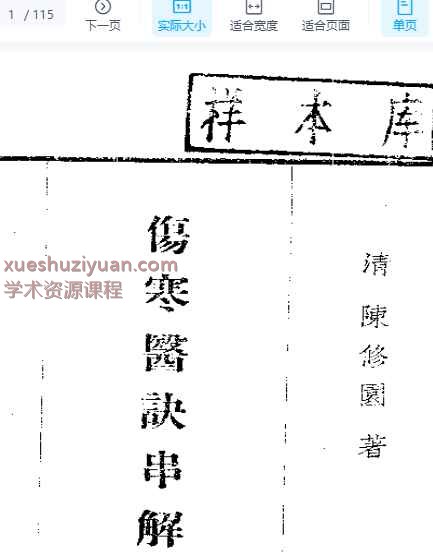 1 / 115
下一页
实际大小
适合宽度
适合页面
单页
样本库
清陳修園著
傷寒醫訣串解
xueshuziyuan.com
学术资源课程